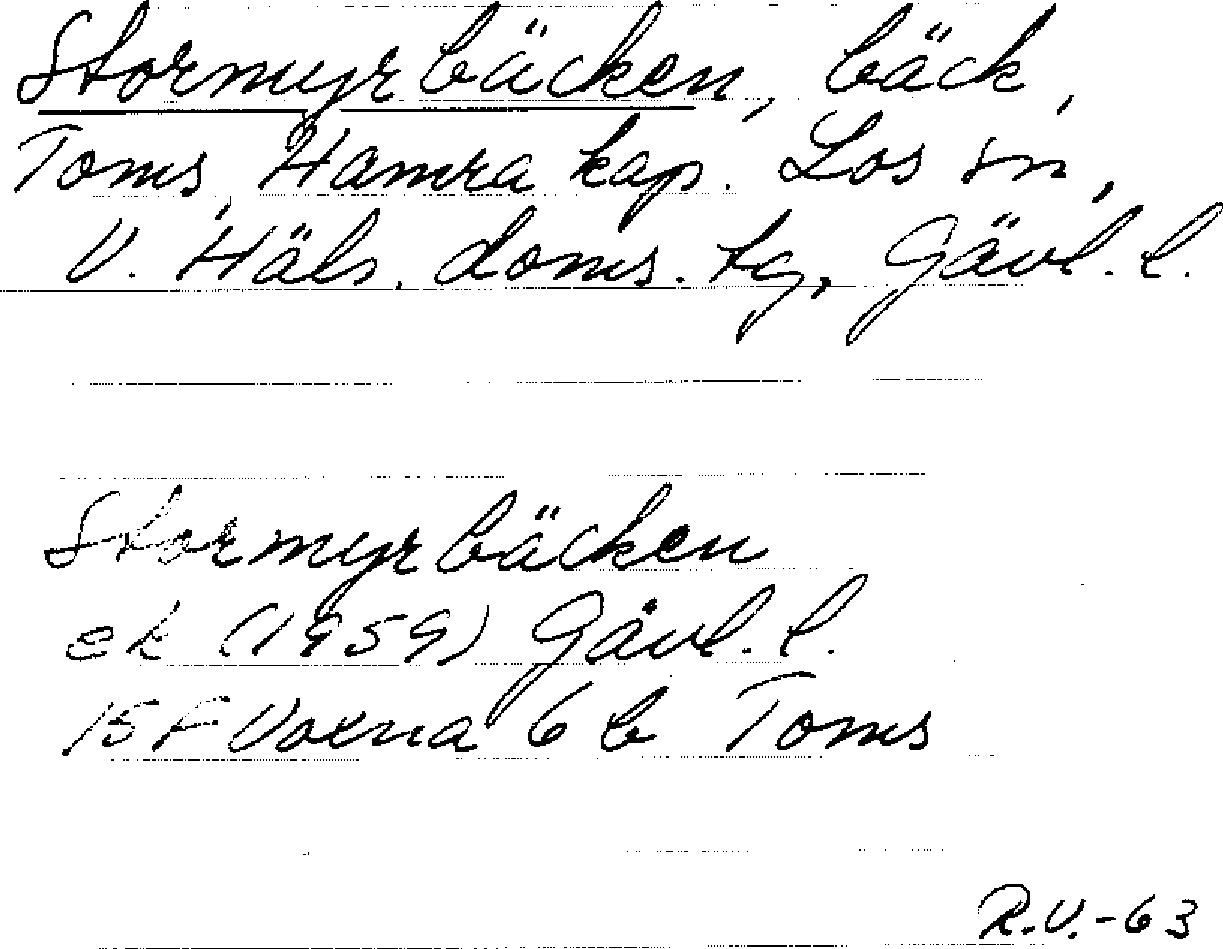 Stormyrbäcken, bäck,
Toms, Hamra kap. Los sn,
V. Häls. doms. tg, Gävl. l.
Stormyrbäcken
ek (1959) Gävl. l.
15 F Voxna 6 b Toms
R.V.-63